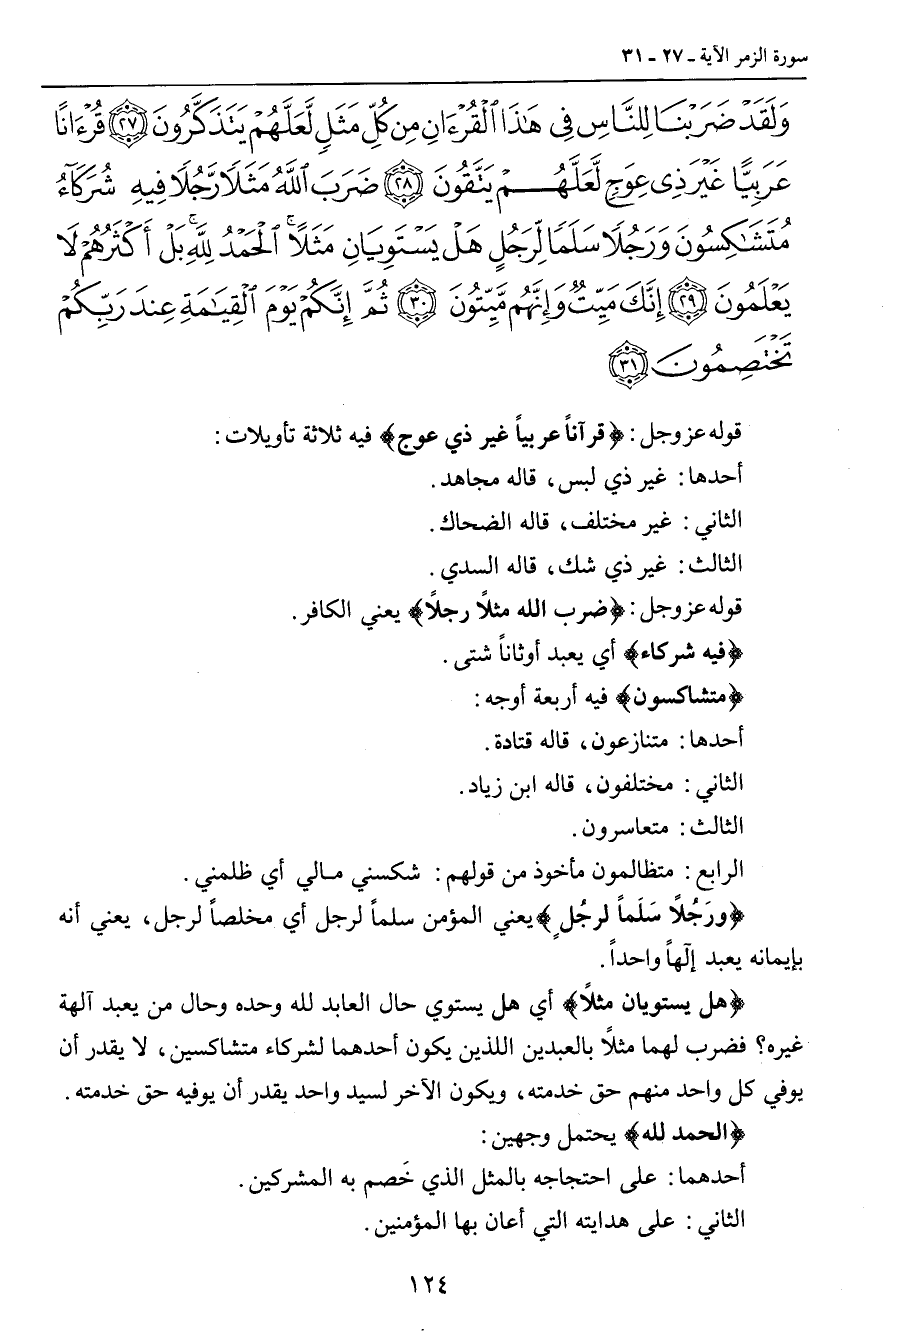 سورة الزمر الآية ـ ٢٧ ـ ٣١
وَلَقَدْ ضَرَبْنَا لِلنَّاسِ فِى هَٰذَا ٱلْقُرْءَانِ مِن كُلِّ مَثَلٍ لَّعَلَّهُمْ يَتَذَكَّرُونَ ۝٢٧ قُرْءَانًا
عَرَبِيًّا غَيْرَ ذِى عِوَجٍ لَّعَلَّهُمْ يَتَّقُونَ ۝٢٨ ضَرَبَ ٱللَّهُ مَثَلًا رَّجُلًا فِيهِ شُرَكَآءُ
مُتَشَٰكِسُونَ وَرَجُلًا سَلَمًا لِّرَجُلٍ هَلْ يَسْتَوِيَانِ مَثَلًا ۚ ٱلْحَمْدُ لِلَّهِ ۚ بَلْ أَكْثَرُهُمْ لَا
يَعْلَمُونَ ۝٢٩ إِنَّكَ مَيِّتٌ وَإِنَّهُم مَّيِّتُونَ ۝٣٠ ثُمَّ إِنَّكُمْ يَوْمَ ٱلْقِيَٰمَةِ عِندَ رَبِّكُمْ
تَخْتَصِمُونَ ۝٣١
قوله عز وجل: ﴿قرآناً عربياً غير ذي عوج﴾ فيه ثلاثة تأويلات:
أحدها: غير ذي لبس، قاله مجاهد.
الثاني: غير مختلف، قاله الضحاك.
الثالث: غير ذي شك، قاله السدي.
قوله عز وجل: ﴿ضرب الله مثلاً رجلاً﴾ يعني الكافر.
﴿فيه شركاء﴾ أي يعبد أوثاناً شتى.
﴿متشاكسون﴾ فيه أربعة أوجه:
أحدها: متنازعون، قاله قتادة.
الثاني: مختلفون، قاله ابن زياد.
الثالث: متعاسرون.
الرابع: متظالمون مأخوذ من قولهم: شكسني مالي أي ظلمني.
﴿ورَجُلاً سَلَماً لرجُلٍ﴾ يعني المؤمن سلماً لرجل أي مخلصاً لرجل، يعني أنه
بإيمانه يعبد إلٰهاً واحداً.
﴿هل يستويان مثلاً﴾ أي هل يستوي حال العابد لله وحده وحال من يعبد آلهة
غيره؟ فضرب لهما مثلاً بالعبدين اللذين يكون أحدهما لشركاء متشاكسين، لا يقدر أن
يوفي كل واحد منهم حق خدمته، ويكون الآخر لسيد واحد يقدر أن يوفيه حق خدمته.
﴿الحمد لله﴾ يحتمل وجهين:
أحدهما: على احتجاجه بالمثل الذي خَصم به المشركين.
الثاني: على هدايته التي أعان بها المؤمنين.
١٢٤